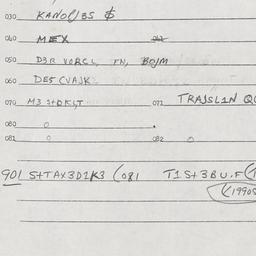 030 KANOL/BS $
040 MEX 042
050 D3R VORCL, IN, BOJM
060 DES (VAJK
070 M3 S+DKLT 071 TRAJSLIN Q
080 0
081 0 082 0
901 S+TAX3D1K3 (081 T1S+3BU.F (1
(1990S